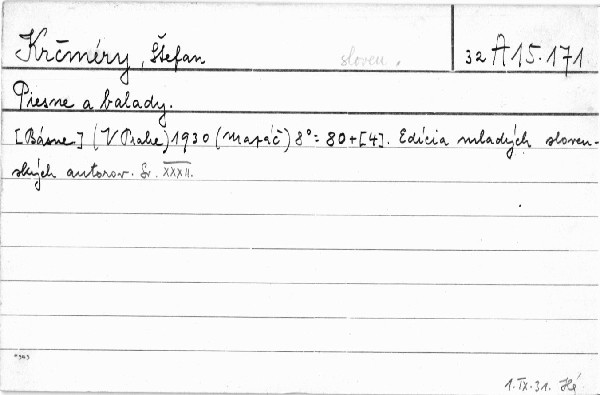 Krčméry, Štefan sloven. 32 A 15.171
Piesne a balady.
[Básne.] (V Prahe) 1930 (Mazáč) 8° = 80+[4]. Edícia mladých sloven-
ských autorov. Sv. XXXII.
1.IX.31.